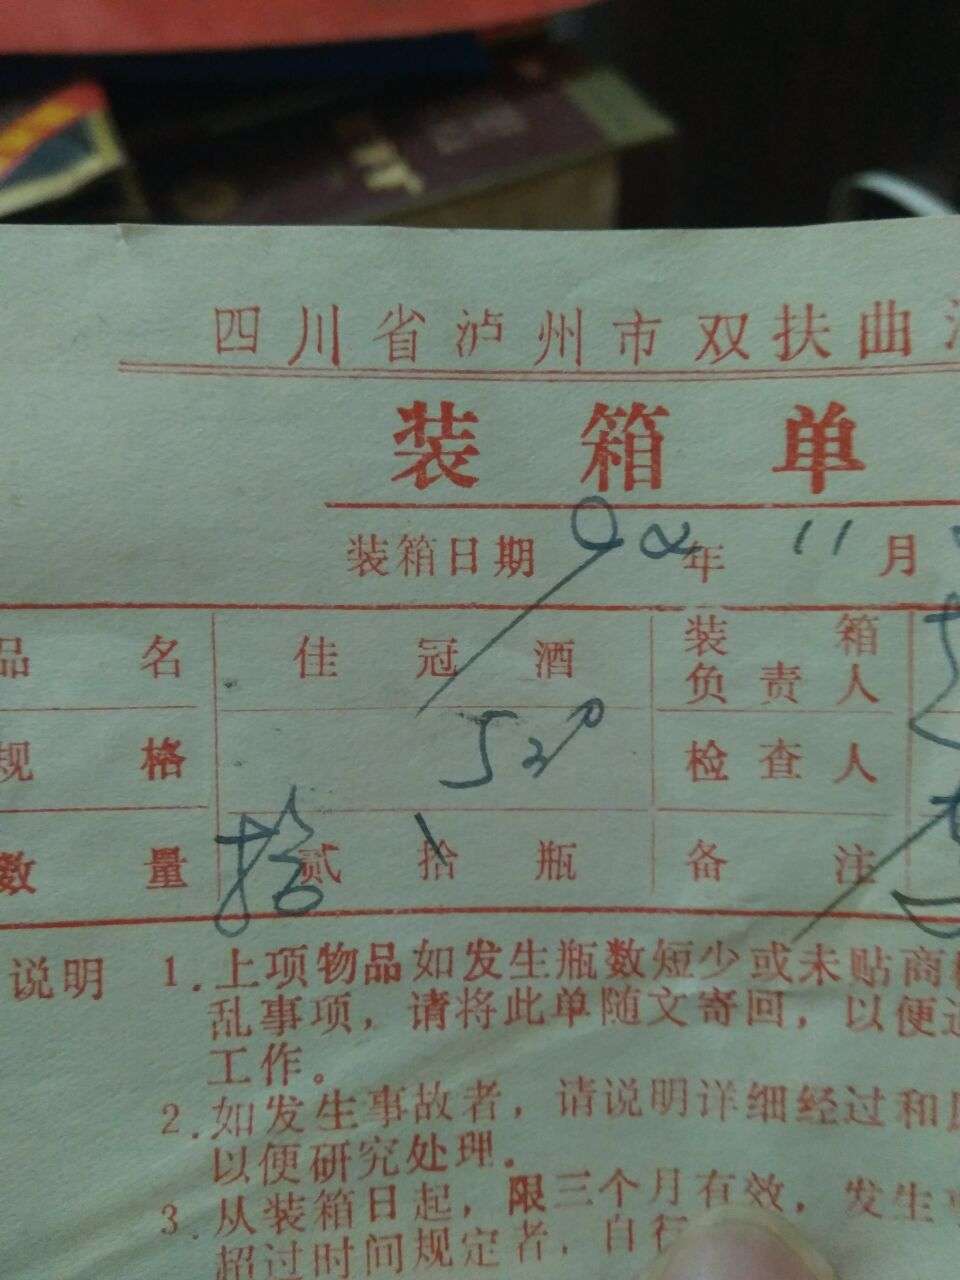 四川省泸州市双扶曲
装箱单
装箱日期 年 11月
品名 佳冠酒 装箱负责人
规格 52° 检查人
数量 拾 贰拾瓶 备注
说明 1.上项物品如发生瓶数短少或未贴商
乱事项，请将此单随文寄回，以便
工作。
2.如发生事故者，请说明详细经过和
以便研究处理。
3.从装箱日起，限三个月有效，发生
超过时间规定者，自行